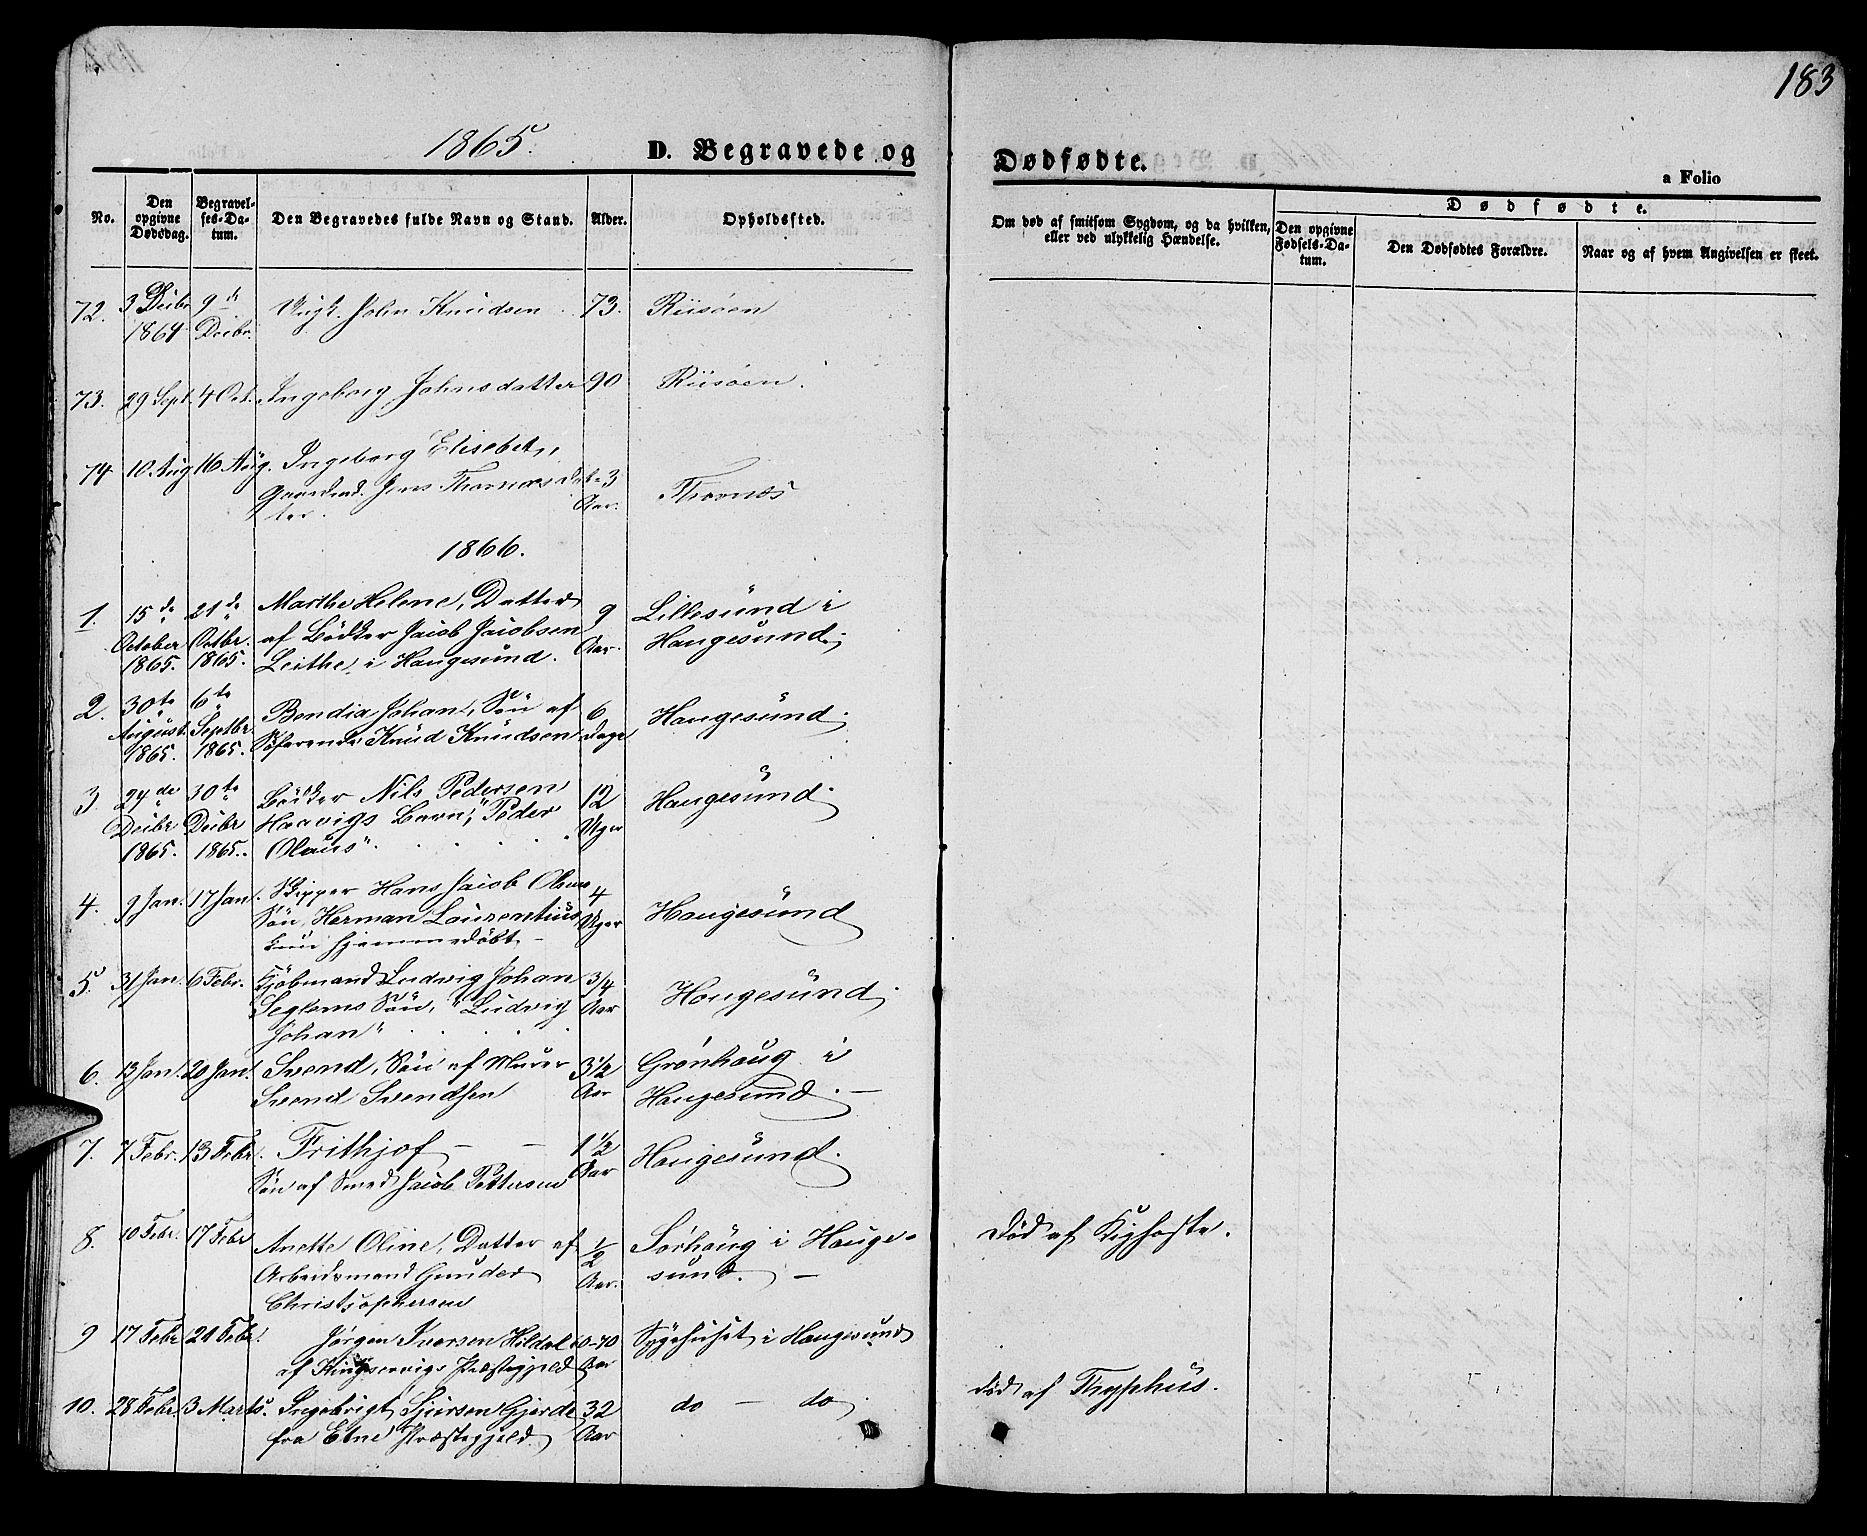 183
1865.
D. Begravede og Dødfødte.
a Folio
No.
Den opgivne Dødsdag.
Begravelses-Datum.
Den Begravedes fulde Navn og Stand.
Alder.
Opholdssted.
Om død af smitsom Sygdom, og da hvilken, eller ved ulykkelig Hændelse.
Dødfødte.
Den opgivne Fødsels-Datum.
Den Dødfødtes Forældre.
Naar og af hvem Angivelsen er skeet.
72. 3 Decbr 1864 9de Decbr. John Knudsen 73. Riisøen
73. 29 Sept. 4 Oct. Ingeborg Johnsdatter 90 Riisøen.
74 10 Aug 16 Aug. Ingeborg Elisebet,
Gaardmd. Jens Thornæs Dat- 3
ter. Aar. Thornæs
1866.
1. 15de 21de Marthe Helene, Datter 9 Lillesund i
October Octbr. af Bödker Jacob Jacobsen Aar. Haugesund.
1865. 1865. Leithe, i Haugesund.
2. 30te 6te Bendix Johan, Sön af 6 Haugesund.
August Septbr Söfarende Knud Knudsen Dage
1865. 1865.
3 24de 30te Bödker Nils Pedersen 12 Haugesund.
Decbr Decbr Haavigs Barn, "Peder Uger
1865. 1865. Olaus".
4. 9 Jan. 17 Jan. Skipper Hans Jacob Olsens 4
Sön, Herman Laurentius, Uger Haugesund
kun hjemmedöbt –
5. 31 Jan. 6 Febr. Kjöbmand Ludvig Johan 3/4
Seglems Sön, "Ludvig Aar Haugesund.
Johan"
6. 13 Jan. 20 Jan. Svend, Sön af Murer 3 1/2 Grönhaug i
Svend Svendsen Aar Haugesund. –
7. 7 Febr. 13 Febr. Frithjof – – 1 1/2 Haugesund.
Sön af Smed Jacob Pettersen Aar
8. 10 Febr. 17 Febr Anette Oline, Datter af 1/2 Sörhaug i Hauge- Död af Kighoste.
Arbeidsmand Gunder Aar. sund. –
Christophersen
9 17 Febr 21 Febr. Jörgen Iversen Hildal 60-70 Sygehuset i Haugesund
af Kingservigs Præstegjeld Aar
10. 28 Febr. 3 Marts. Ingebrigt Sjursen Gjerde 32 do – do död af Thyphus.
fra Etne Præstegjeld. Aar